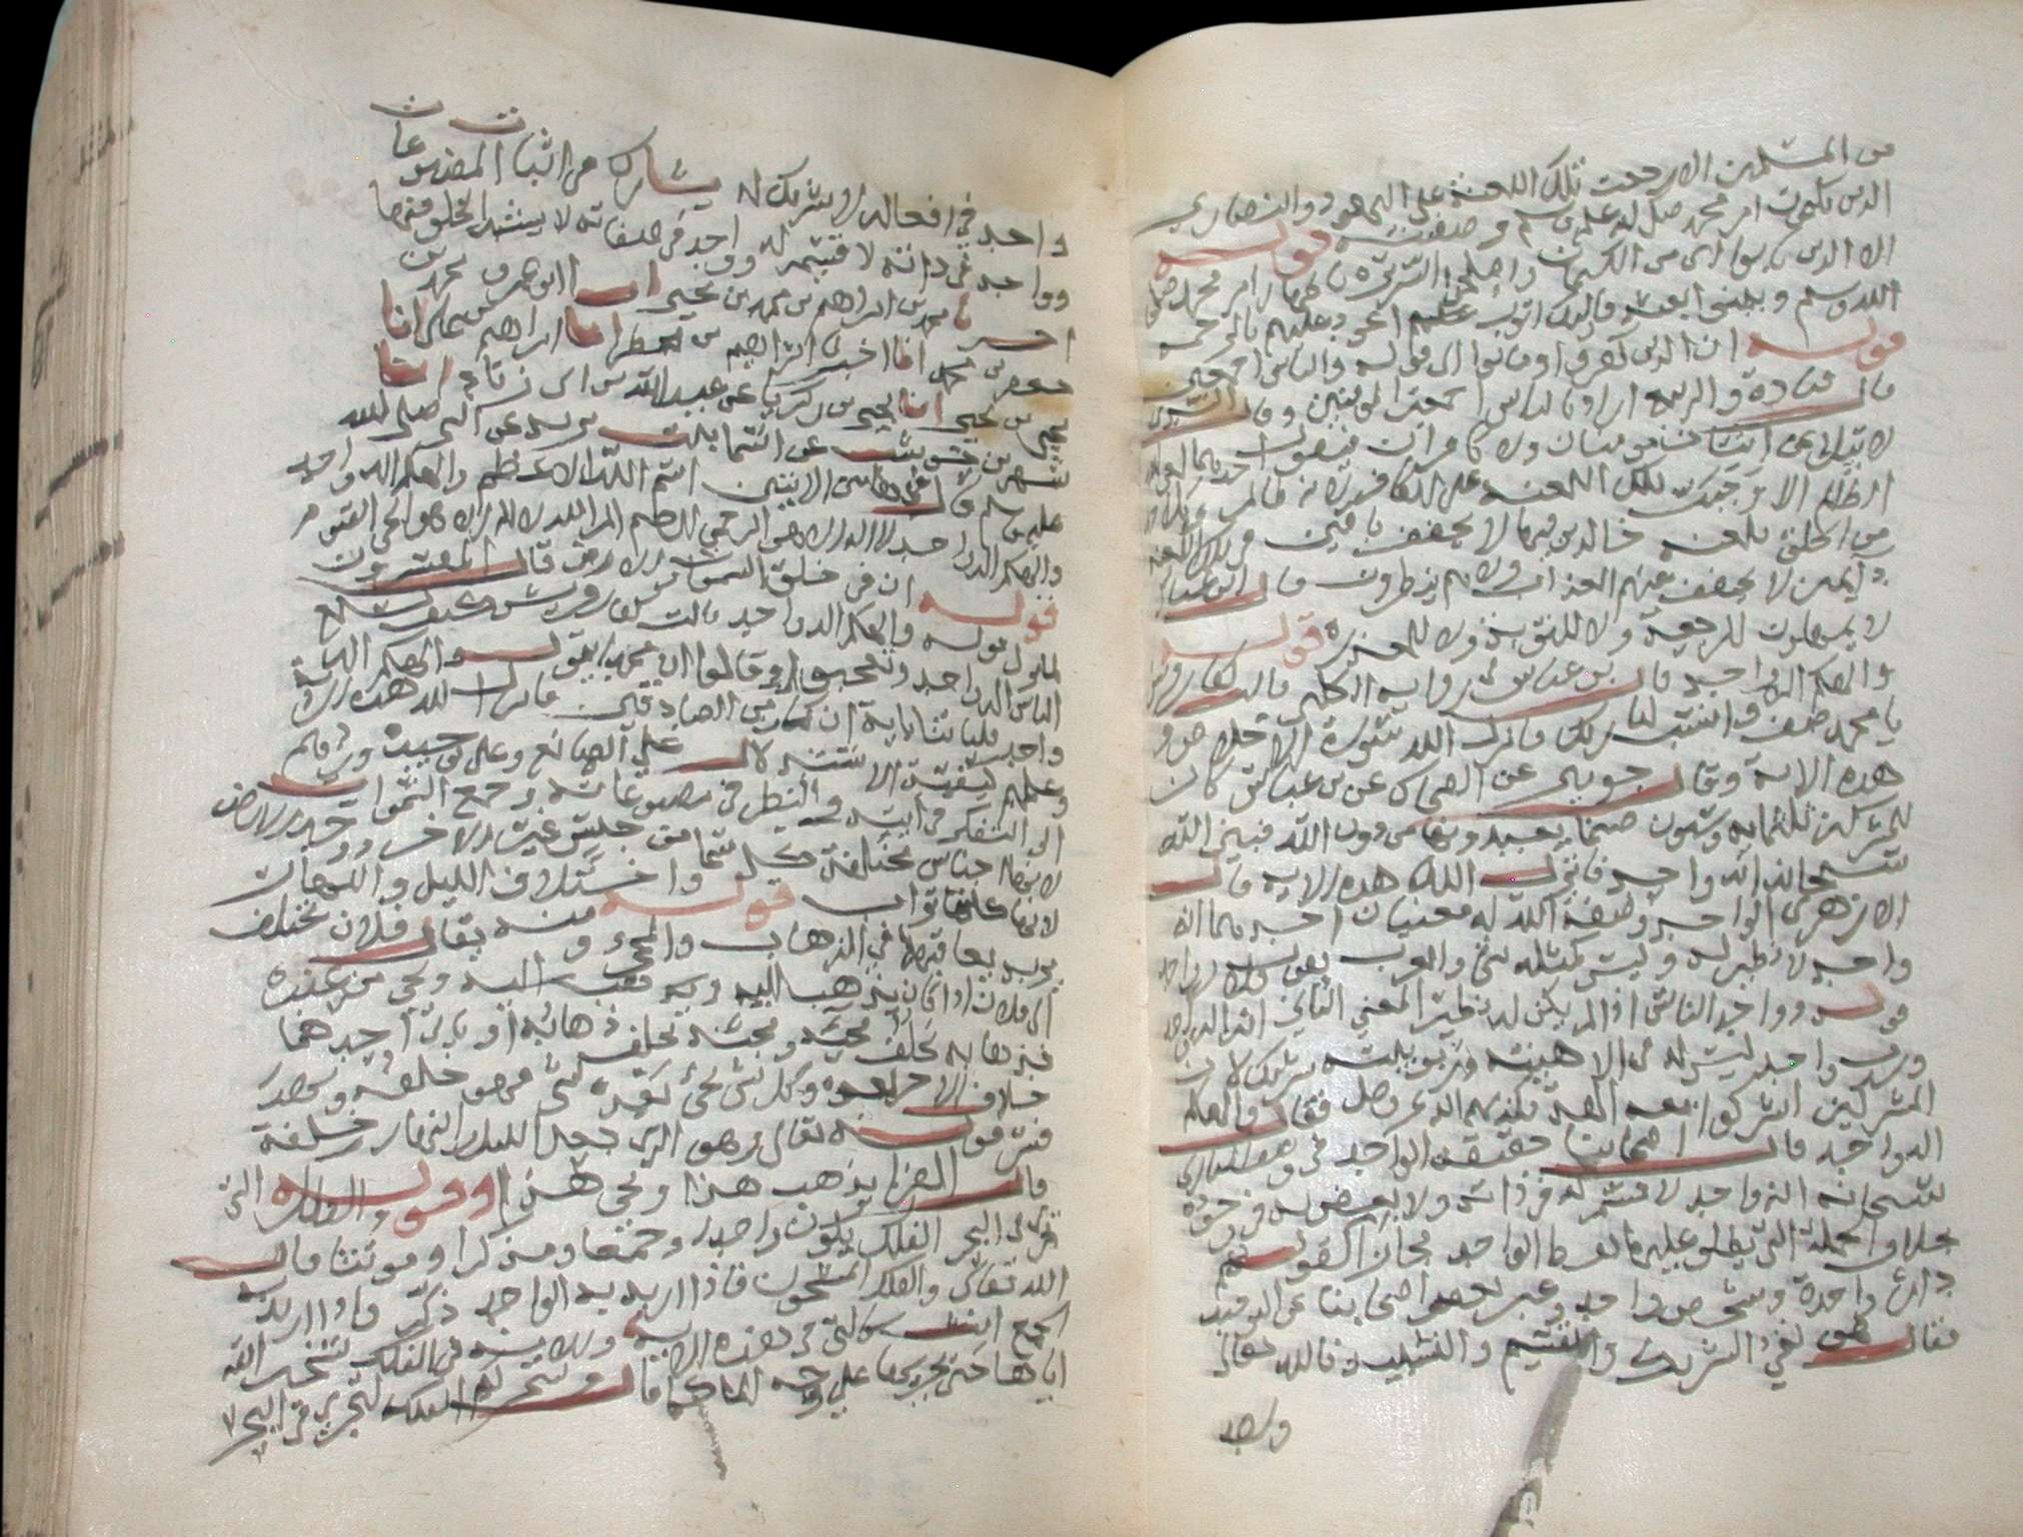 من المسلمين الا رجعت تلك اللعنة على اليهود والنصارى
الذين كتموا امر محمد صلى الله عليه وسلم وصفته قوله
الا الذين تابوا اى من الكتمان واصلحوا السريرة باظهار امر محمد صلى
الله وسلم وبينوا نعته فاوليك اتوب عليهم اعود عليهم بالرحمة
قوله ان الذين كفروا وماتوا الى قوله والناس اجمعين
قال قتادة والربيع اراد بالناس اجمعين المومنين وقال السدى
لا يتلاعن اثنان مومنان ولا كافران فيقول احدهما لعن الله
الظالم الا وجبت تلك اللعنة على الكافر لانه ظالم
من الخلق يلعنه خالدين فيها لا يخفف باقين فى تلك اللعنة
دايمين لا يخفف عنهم العذاب ولا هم ينظرون قال ابن عباس
لا يمهلون للرجعة ولا للتوبة ولا للمعذرة قوله
والهكم اله واحد قال بن عباس فى رواية الكلبى قالت كفار قريش
يا محمد صف وانسب لنا ربك فانزل الله سورة الاخلاص و
هذه الاية وقال جويبر عن الضحاك عن بن عباس كان
للمشركين ثلثمايه وستون صنما يعبدونها من دون الله فبين الله
سبحانه انه واحد فانزل الله هذه الاية قال
الازهرى الواحد وصفة الله له معنيان احدهما انه
واحد لا نظير له وليس كمثله شئ والعرب يقول فلان واحد
قومه وواحد الناس اذا لم يكن له نظير المعنى الثانى انه اله واحد
ورب واحد ليس له فى الاهيته وربوبيته شريك لان
المشركين اشركوا معه الهة فكذبهم الله عز وجل فقال والهكم
اله واحد قال اصحابنا حقيقة الواحد فى وصف البارى
سبحانه انه واحد لا قسيم له فى ذاته ولا بعض له فى وجوده
بخلاف الجملة التى يطلق عليها لفظ الواحد مجازا كقولهم
دار واحدة وشخص واحد وعبر بعض اصحابنا عن التوحيد
فقال هو نفى الشريك والقسيم والشبيه فالله تعالى
واحد
واحد فى افعاله لا شريك له يشاركه فى اثبات المصنوعات
وواحد فى ذاته لا قسيم له وواحد فى صفاته لا يشبه الخلق فيها
اخبرنا محمد بن ابراهيم بن محمد بن يحيى انا ابو عمرو محمد بن
جعفر بن انا ابراهيم بن انا ابراهيم بن على انا
يحيى بن يحيى انا يحيى بن زكريا عن عبيد الله بن ابى زياد انا
شهر بن حوشب عن اسما بنت يزيد عن النبى صلى الله
عليه وسلم قال فى هاتين الايتين اسم الله الاعظم والهكم اله واحد
والهكم اله واحد لا اله الا هو الرحمن الرحيم الم الله لا اله الا هو الحى القيوم
قوله ان فى خلق السموات والارض قال المفسرون
لما نزل قوله والهكم اله واحد قالت كفار قريش كيف يسع
الناس اله واحد وتعجبوا وقالوا ان محمدا يقول والهكم اله
واحد فلياتنا باية ان كان من الصادقين فانزل الله هذه الاية
وعلمهم كيفية الاستدلال على الصانع وعلى توحيده وردهم
الى التفكر فى اياته والنظر فى مصنوعاته وجمع السموات
لانها اجناس مختلفة كل سما من جنس غير الاخر ووحد الارض
لانها كلها تراب قوله واختلاف الليل والنهار
يريد تعاقبهما فى الذهاب والمجى ومنه يقال فلان يختلف
الى فلان اذا كان يذهب اليه ويجى من عنده
فذهابه يخلف مجيه ومجيه يخلف ذهابه اى ياتى احدهما
خلاف الاخر بعده وكل شى يجئ بعده شى فهو خلفه وبهذا
فسر قوله تعالى وهو الذى جعل الليل والنهار خلفة
قال الفرا يذهب هذا ويجى هذا وقوله والفلك التى
تجرى فى البحر الفلك يكون واحدا وجمعا ومذكرا ومونثا قال
الله تعالى والفلك المشحون فاذا اريد به الواحد ذكر واذا اريد به
الجمع انث كالتى فى هذه الاية والاية فى الفلك تسخير الله
اياها حتى يجريها على وجه الما كما قال وسخر لكم الفلك لتجرى فى البحر